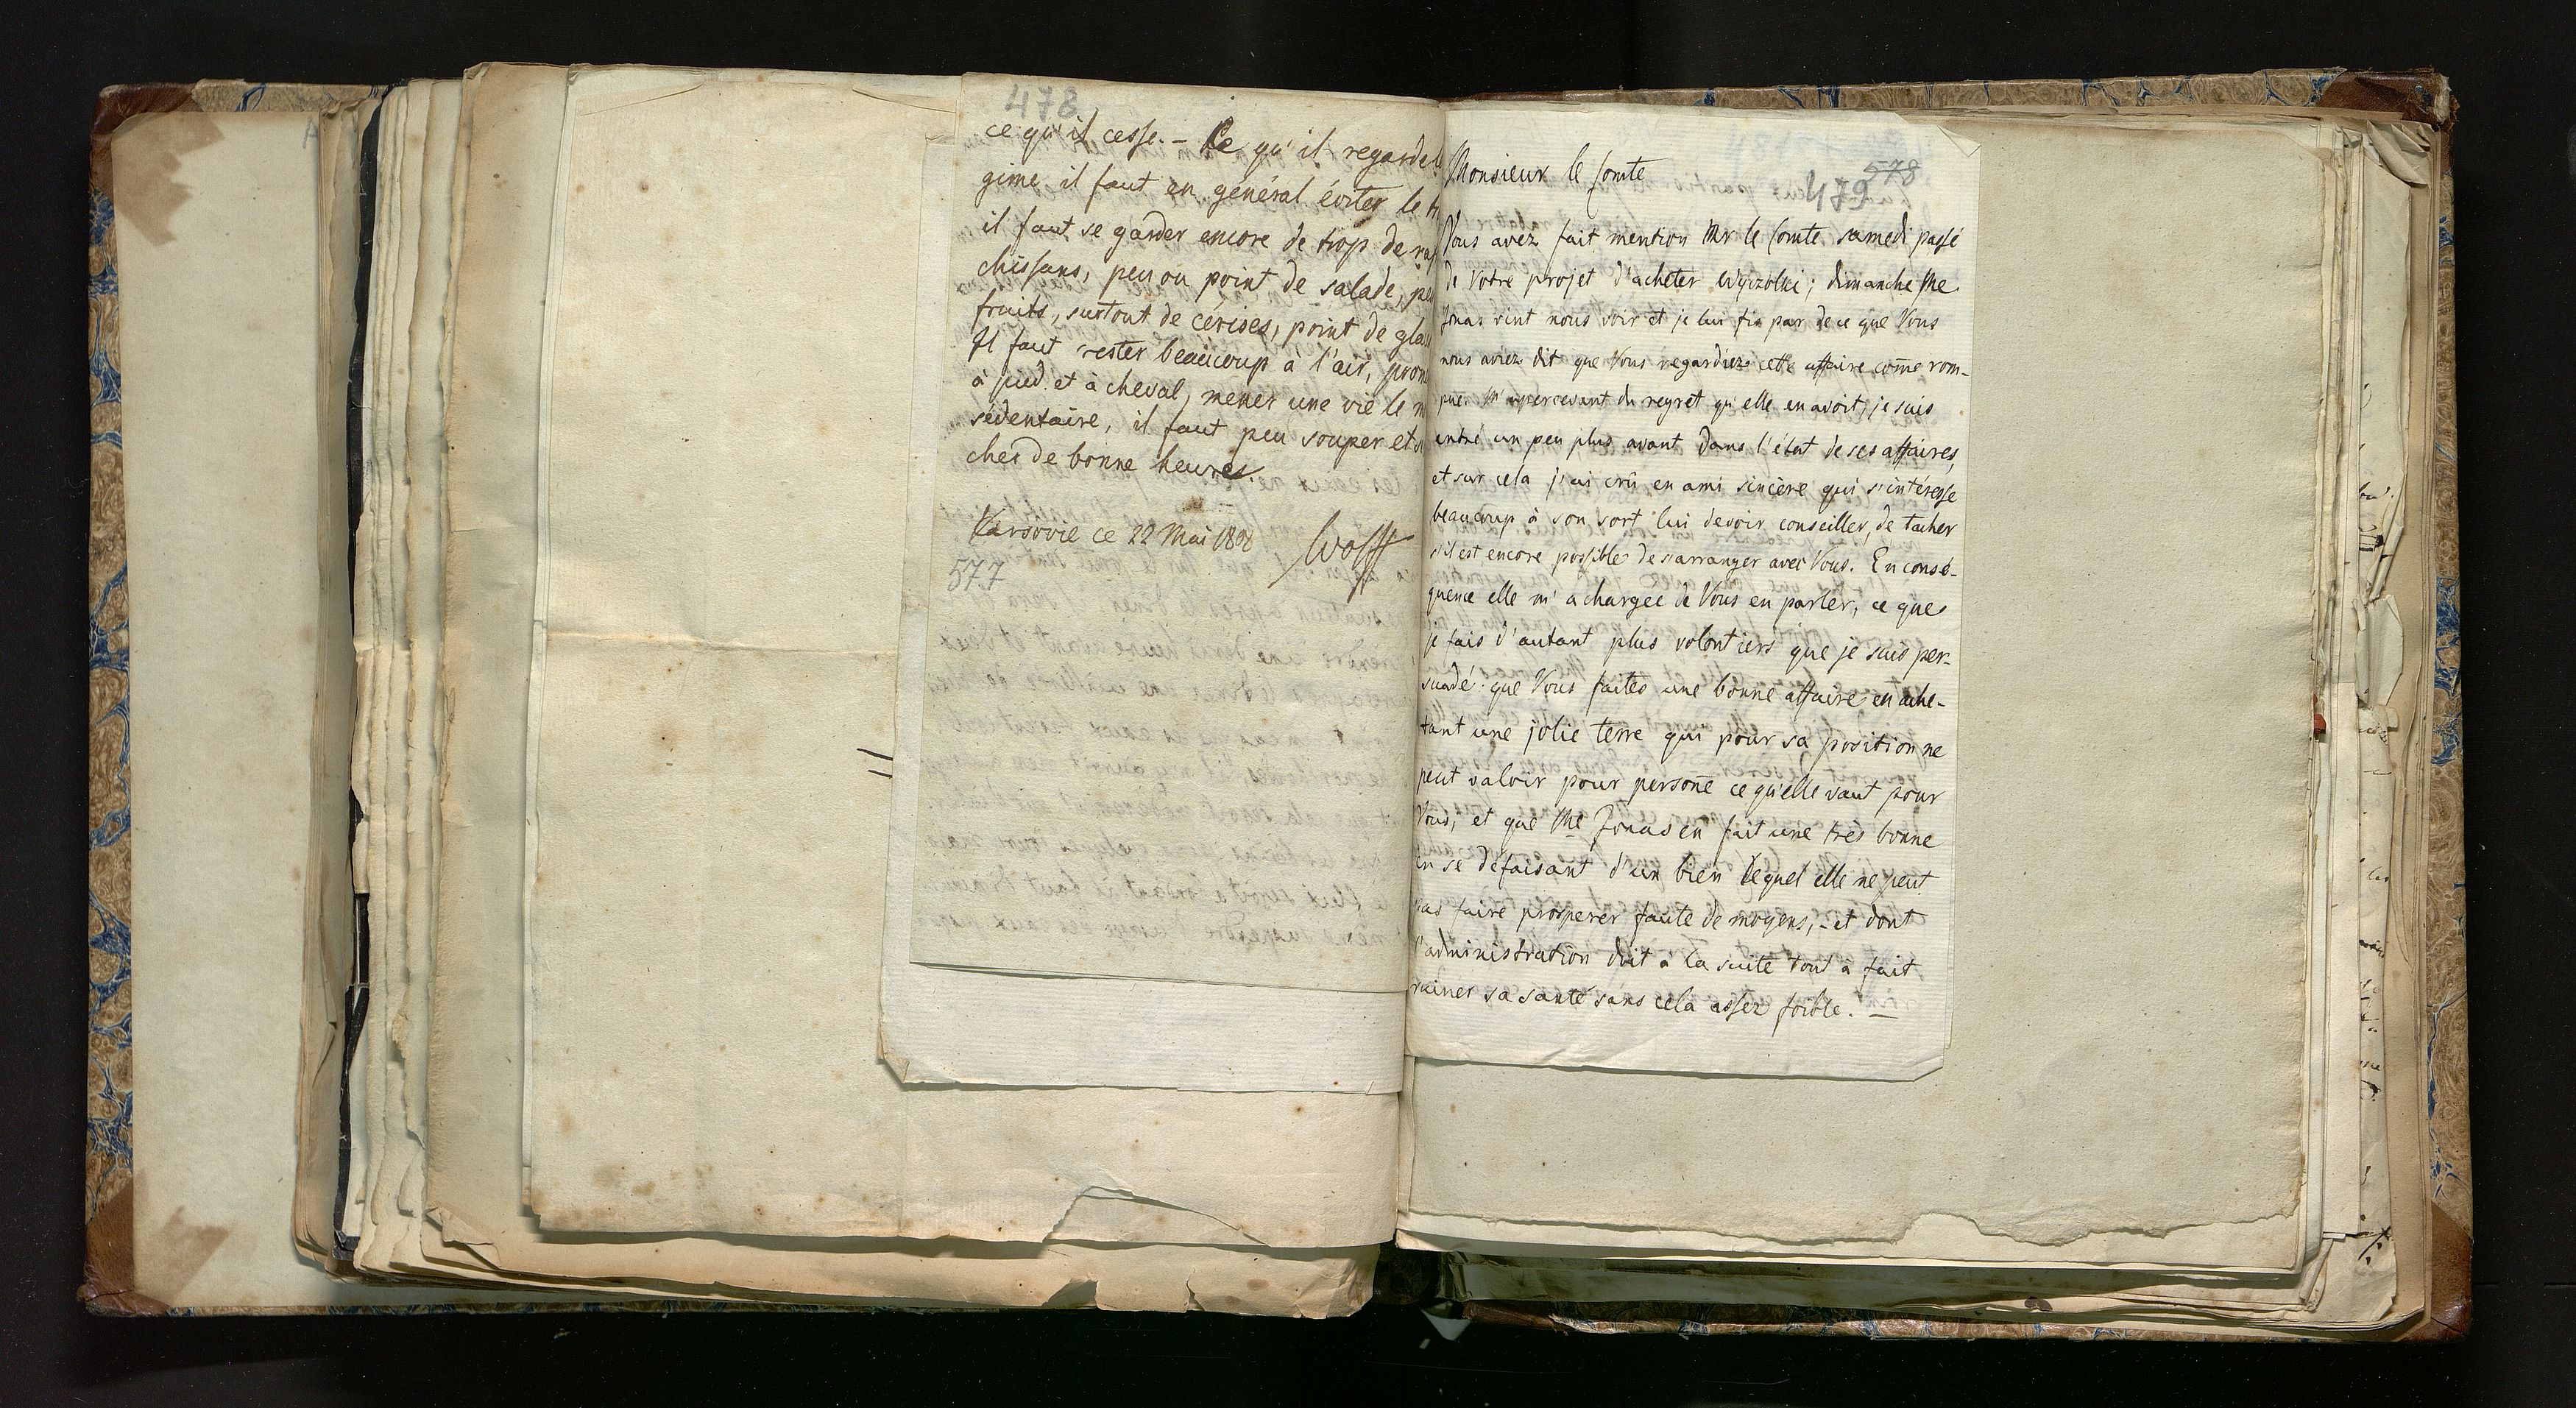 478
ce qu'il cesse. – Ce qu'il regarde
gime il faut en général éviter le
il faut se garder encore de trop de
chissans, peu ou point de salade,
fruits, surtout de cérises, point de
Il faut rester beaucoup à l'air,
à pied et à cheval, mener une vie le
sédentaire, il faut peu souper et
cher de bonne heures.
Varsovie ce 22 Mai
Wolff
577
Monsieur le Comte
578
479
Vous avez fait mention Mr le Comte samedi passé
de Votre projet d'acheter Wyczolki; dimanche Me
Jonas vint nous voir et je lui fis par de ce que Vous
nous aviez dit que Vous regardiez cette affaire come rom-
pue. M'apercevant du regret qu'elle en avoit, je suis
entré un peu plus avant dans l'état de ses affaires,
et sur cela j'ai crû en ami sincère qui s'intéresse
beaucoup à son sort lui devoir conseiller, de tacher
s'il est encore possible de s'arranger avec Vous. En consé-
quence elle m'a chargée de Vous en parler, ce que
je fais d'autant plus volontiers que je suis per-
suadé que Vous faites une bonne affaire en ache-
tant une jolie terre qui pour sa position ne
peut valoir pour persone ce qu'elle vaut pour
Vous, et que Me Jonas en fait une très bonne
en se défaisant d'un bien lequel elle ne peut
pas faire prosperer faute de moyens, - et dont
l'administration doit à la suite tout à fait
ruiner sa santé sans cela assez foible. –